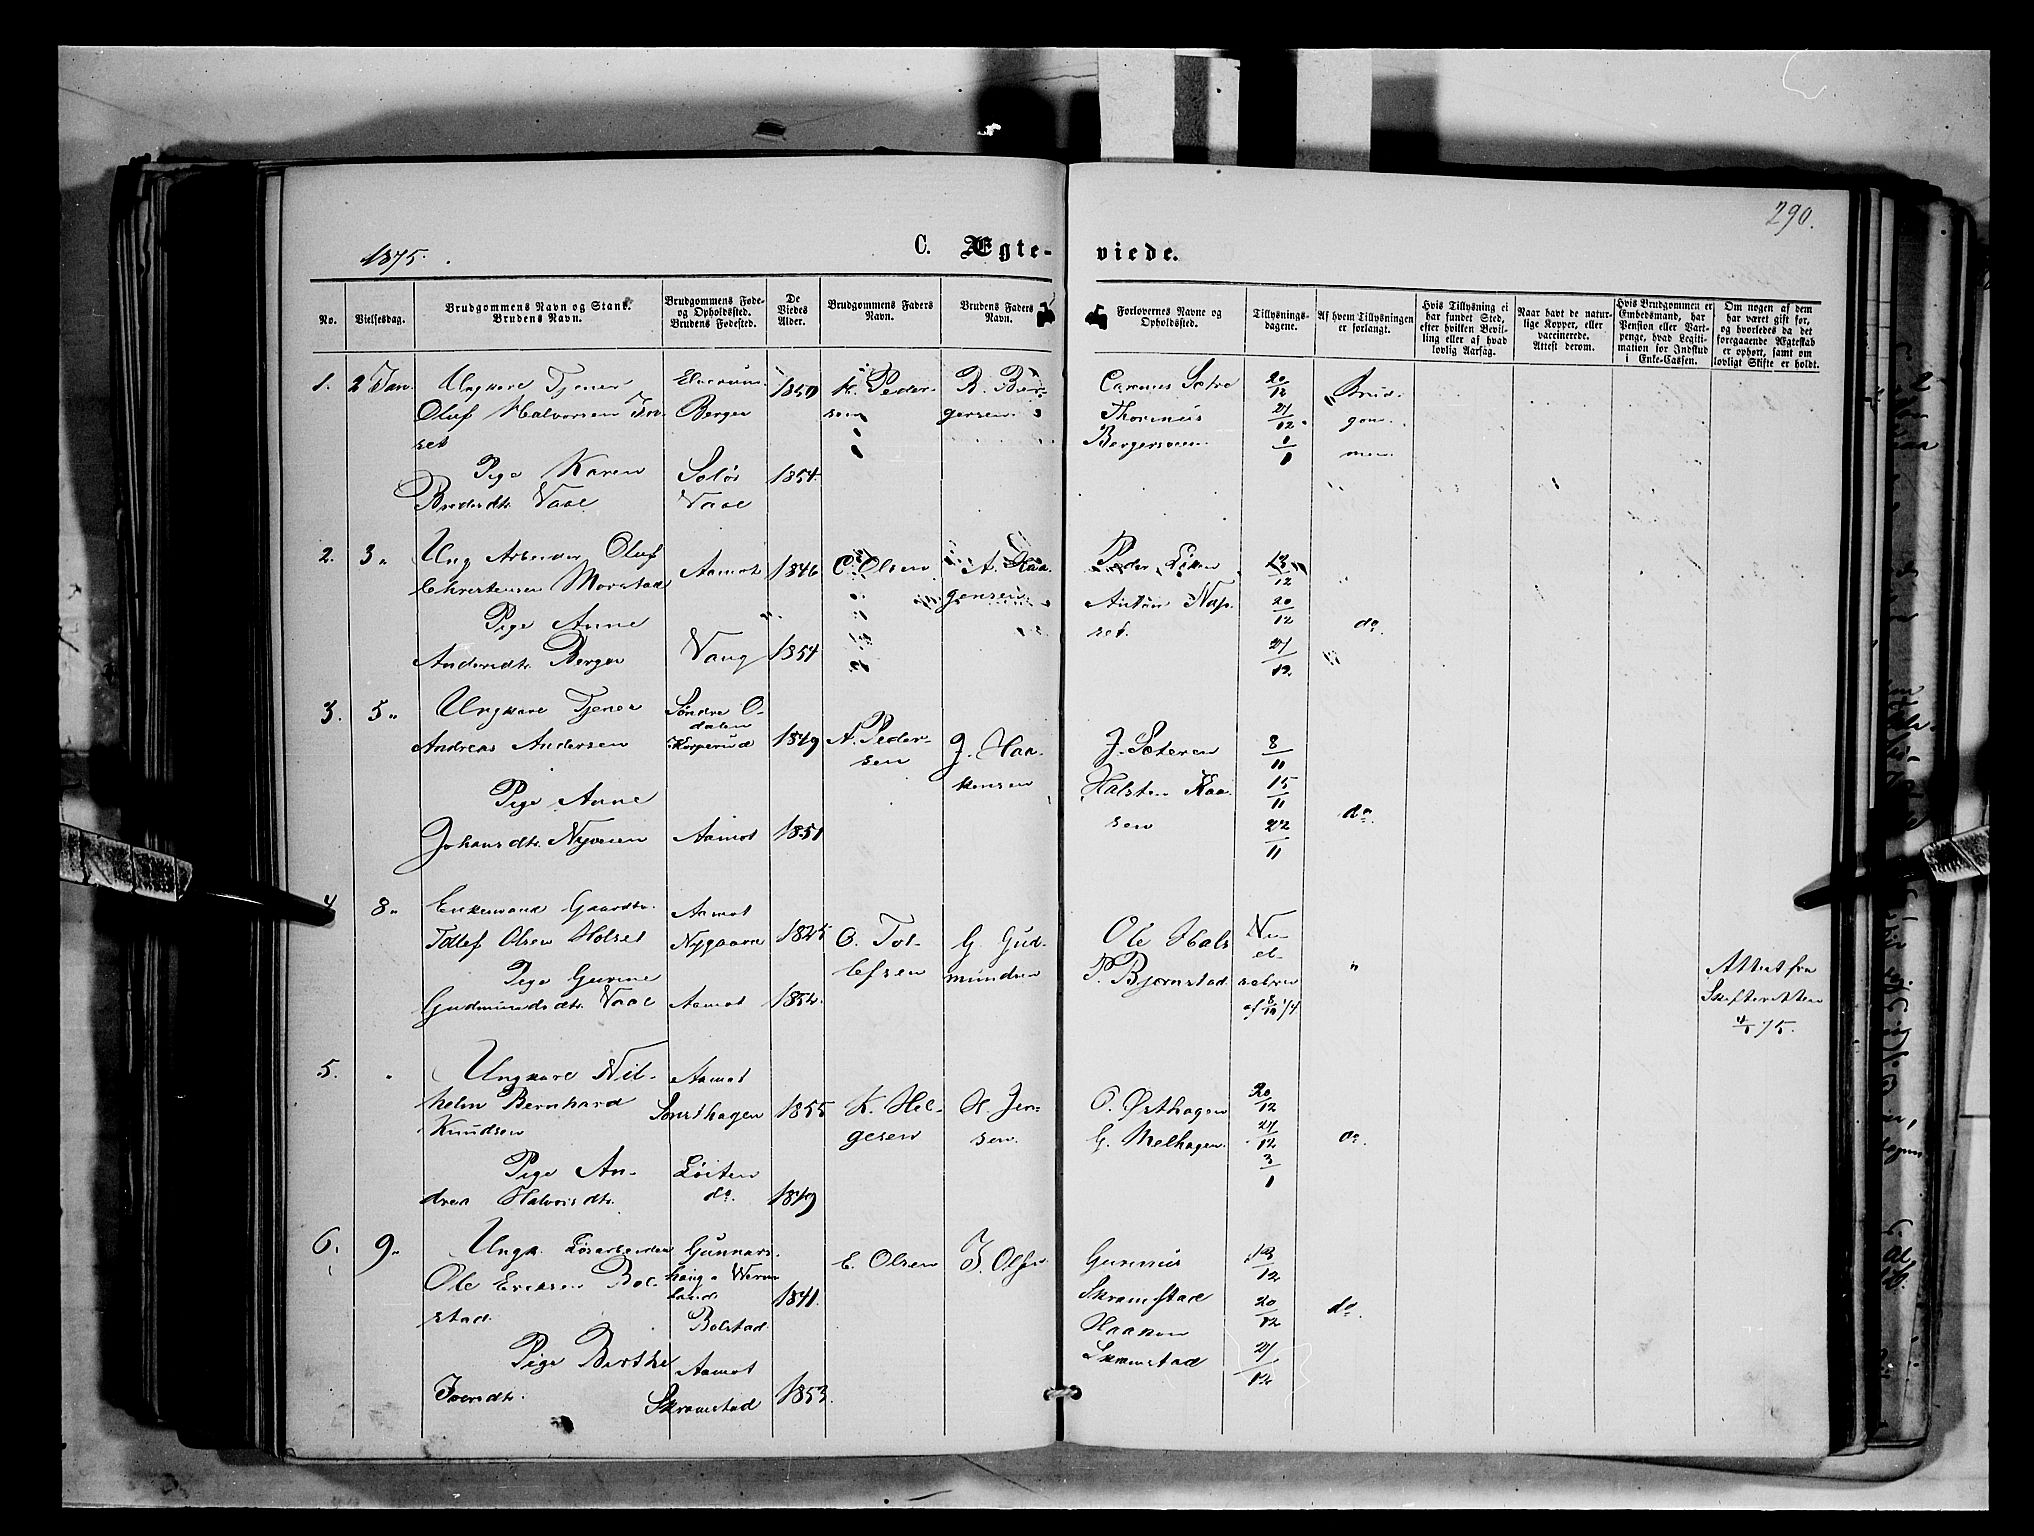 290.
1875.
C. Ægte-
viede.
No.
Vielsesdag.
Brudgommens Navn og Stand.
Brudens Navn.
Brudgommens Føde-
og Opholdssted.
Brudens Fødested.
De
Viedes
Alder.
Brudgommens Faders
Navn.
Brudens Faders
Navn.
Forlovernes Navne og
Opholdssted.
Tillysnings-
dagene.
Af hvem Tillysningen
er forlangt.
Hvis Tillysning ei
har fundet Sted,
efter hvilken Bevil-
ling eller af hvad
lovlig Aarsag.
Naar havt de natur-
lige Kopper, eller
vaccinerede.
Attest derom.
Hvis Brudgommen er
Embedsmand, har
Pension eller Vart-
penge, hvad Legiti-
mation for Indskud
i Enke-Cassen.
Om nogen af dem
har været gift før,
og hvorledes da det
foregaaende Ægteskab
er ophørt, samt om
lovligt Skifte er holdt.
1.
2 Jan
Ungkare Tjener
Oluf Halvorsen
set
Pige Karen
Vaal
Elverum
Berger
Solør
Vaal
1850
1854.
H. Peder-
sen
B. Ber-
gersen
Sætre
Thorinus
Bergersen
20/12
27/12
1/1
Brud-
gom-
men.
2.
3 "
Ung. Arbeider Oluf
Christensen Morstad
Pige Anne
Andersdtr. Berger
Aamot
Vang
1846
1854
C. Olsen
A. Haa-
gensen
Peder Lien
Anton Nap-
set.
13/12
20/12
27/12
do.
3.
5 "
Ungkare Tjener
Andreas Andersen
Pige Anne
Johansdtr. Nyveien
Søndre O-
dalen
Korperud
Aamot
1849
1851
A. Peder-
sen
J. Haa-
kensen
J. Sæteren
Halsten Kaa
sen
8/11
15/11
22/11
do.
4
8 "
Enkemand Gaardbr.
Tollef Olsen Holset
Pige Gurine
Gudmundsdtr. Vaal
Aamot
Nygaard
Aamot
1825
1852.
O. Tol-
lefsen
G. Gud-
mundsen
Ole Hals
P. Bjørnstad
af 8/12 74
"
Attest fra
Skifteretten
4/1 75.
5.
"
Ungkare Vil-
helm Bernhard
Knudsen
Pige An-
drea Halvorsdtr.
Aamot
Løiten
do.
1855
1849
K. Hel-
gesen
H. Jen-
sen.
O. Østhagen
G. Melhagen.
20/12
27/12
3/1
do.
6.
9 "
Ungk. Løsarbeider
Ole Eriksen Bol-
stad.
Pige Berthe
Iversdtr.
Gunnars-
Werm
land
Bolstad.
Aamot
Skramstad
1841.
1853.
E. Olsen
I. Olsen
Gunnius
Skramstad
Haaken
Skramstad
13/12
20/12
27/12
do.